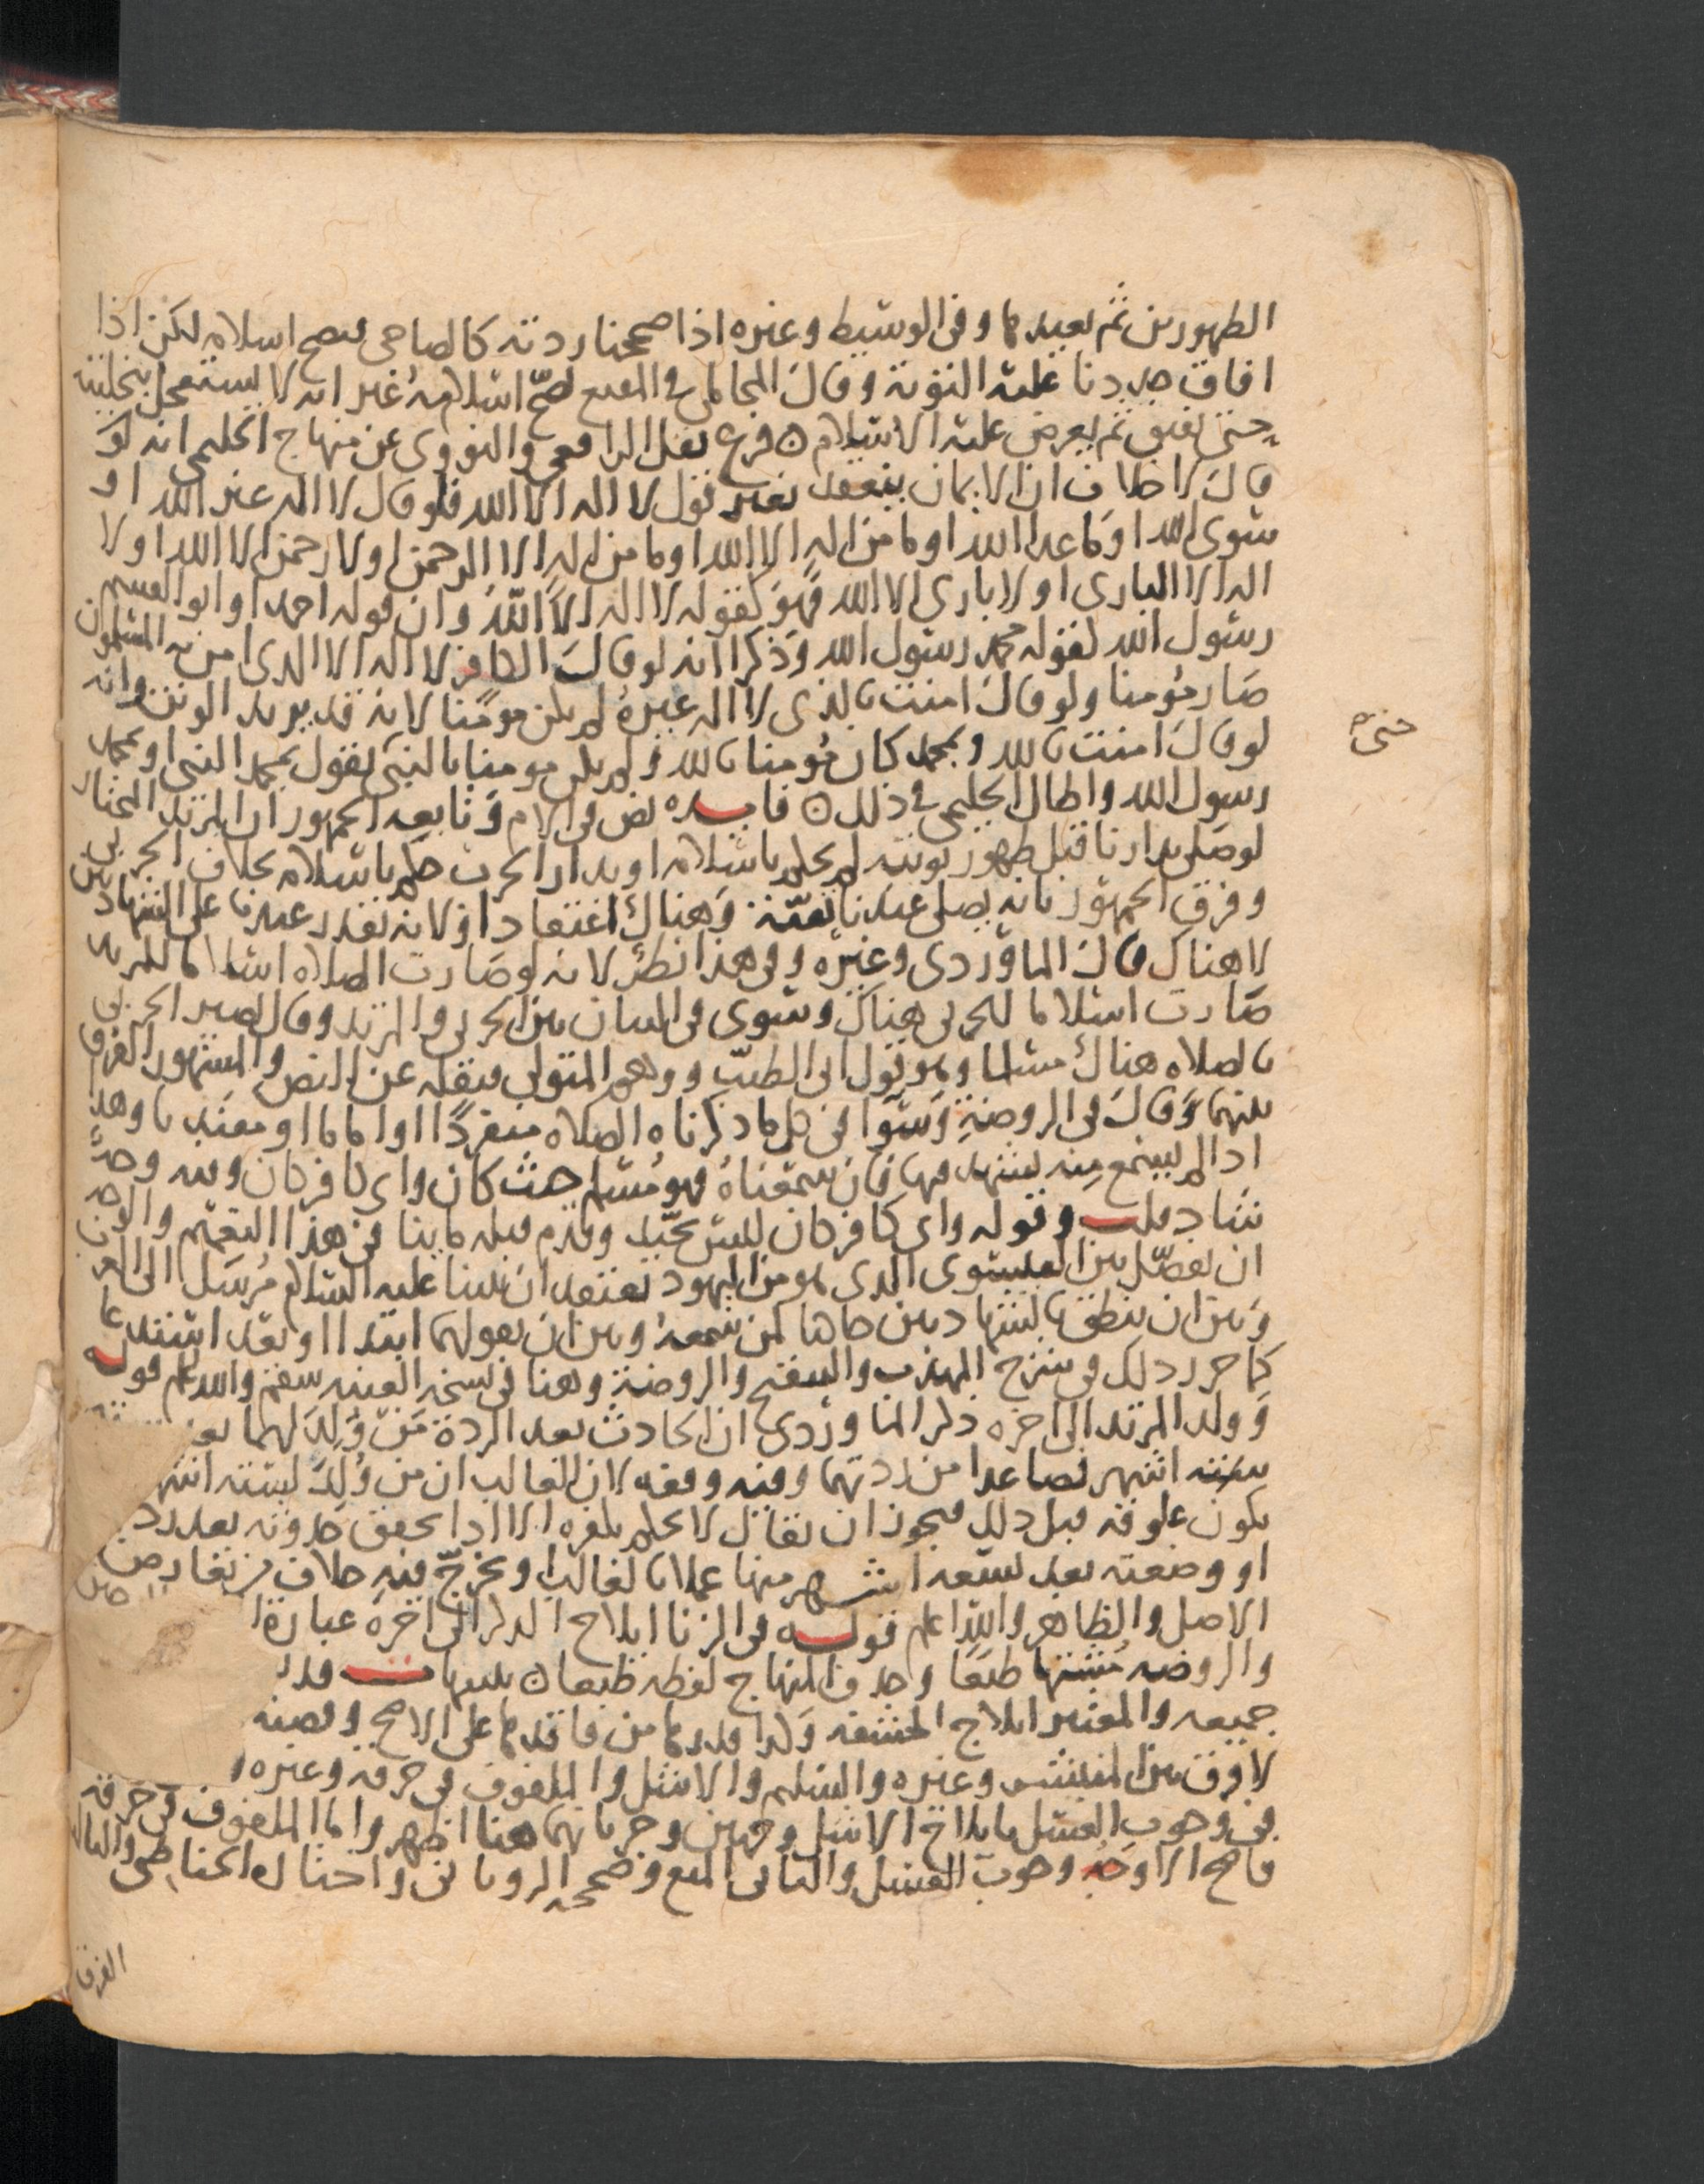 الطهورين ثم يعيدها وفى الوسيط وغيره اذا صححنا ردته كالصاحى فيصح اسلامه لكن اذا
افاق جددنا عليه التوبة وقال المحاملى فى المقنع لا يصح اسلامه غير انه لا يستعجل بتخليته
حتى يفيق ثم يعرض عليه الاسلام فرع نقل الرافعى والنووى عن منهاج الحليمى انه لو
قال لا خلاف ان الايمان ينعقد بغير قول لا اله الا الله فلو قال لا اله غير الله او
سوى الله او ما عدا الله او ما من اله الا الله او ما من اله الا الرحمن او لا رحمن الا الله او لا
اله الا البارى او لا بارى الا الله فهو كقوله لا اله الا الله وان قوله احمد او ابو القسم
رسول الله كقوله محمد رسول الله وذكرا انه لو قال الكافر لا اله الا الذى امن به المسلمون
صار مؤمنا ولو قال امنت بالذى لا اله غيره لم يكن مومنا لانه قد يريد الوثن وانه
لو قال امنت بالله وبمحمد كان مؤمنا بالله ولم يكن مومنا بالنبى لقول بمحمد النبى او بمحمد
رسول الله واطال الحليمى فى ذلك فايده نص فى الام وتابعه الجمهور ان المرتد المختار
لو صلى بدارنا قبل ظهور توبته لم يحكم باسلامه او بدار الحرب حكم باسلامه بخلاف الحربى
وفرق الجمهور بانه يصلى عندنا تقية وهناك اعتقادا ولانه يقدر عندنا على الشهادتين
لا هناك قال الماوردى وغيره وفى هذا نظر لانه لو صارت الصلاه اسلاما للمرتد
صارت اسلاما للحربى هناك وسوى فى البيان بين الحربى والمرتد وقال يصير الحربى
بالصلاه هناك مسلما وهو قول ابى الطيب ووهم المتولى فنقله عن النص والمشهور الفرق
بينهما وقال فى الروضة وسوا فى كل ما ذكرناه الصلاه منفردا او اماما او مقتديا وهذا
اذا لم يسمع منه يتشهد فيها فان سمعناه فهو مسلم حيث كان واى كافر كان وفيه وجه
شاذ قلت وقوله واى كافر كان ليس بجيد وقدم قبله ما ينافى هذا التعميم والوجه
ان يفصل بين العيسوى الذى هو من اليهود يعتقد ان نبينا عليه السلام مرسل الى العرب
وبين ان ينطق بالشهادتين حاكيا لمن سمعه وبين ان يقولهما ابتداا او بعد استدعا
كما حرر ذلك فى شرح المهذب والتنقيح والروضة وهنا فى نسخ الغنيه سقم والله اعلم قوله
وولد المرتد الى اخره ذكر الماوردى ان الحادث بعد الردة من ولد لهما بعد
ستة اشهر فصاعدا من ردتهما وفيه وقفه لان الغالب ان من ولد لستة اشهر
يكون علوقه قبل ذلك فيجوز ان يقال لا يحكم بكفره الا اذا تحقق حدوثه بعد
او وضعته بعد تسعه اشهر منها عملا بالغالب ويخرج فيه خلاف من تعارض
الاصل والظاهر والله اعلم قوله فى الزنا ايلاج الذكر الى اخره عبارة
والروضه مشتها طبعا وحذف المنهاج لفظه طبعا تنبيهات
جميعه والمعتبر ايلاج الحشفه وكذا قدرها من فاقدها على الاصح وقضيته
لا فرق بين المنتشر وغيره والسليم والاشل والملفوف فى خرقه وغيره
فى وجوب الغسل بايلاج الاشل وجهين وجريانهما هنا اظهر واما الملفوف فى خرقه
فاصح الاوجه وجوب الغسل والثانى المنع وصححه الرويانى واختاره الحناطى والثالث
الفرق